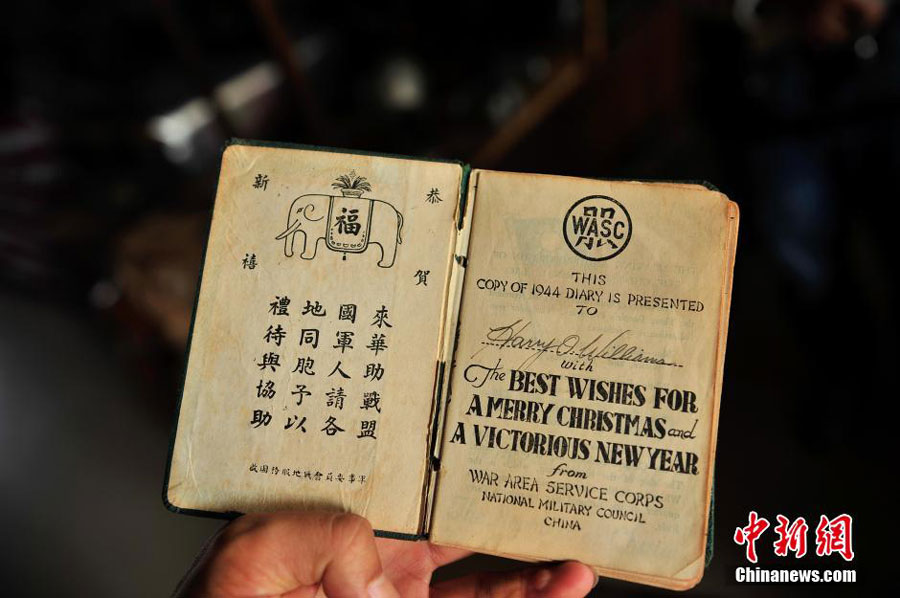 恭賀
新禧
福
來華助戰盟
國軍人請各
地同胞予以
禮待與協助
軍事委員會戰地服務團
WASC
THIS
COPY OF 1944 DIARY IS PRESENTED
TO
Harry O. Williams
with
The BEST WISHES FOR
A MERRY CHRISTMAS and
A VICTORIOUS NEW YEAR
from
WAR AREA SERVICE CORPS
NATIONAL MILITARY COUNCIL
CHINA
中新网
Chinanews.com